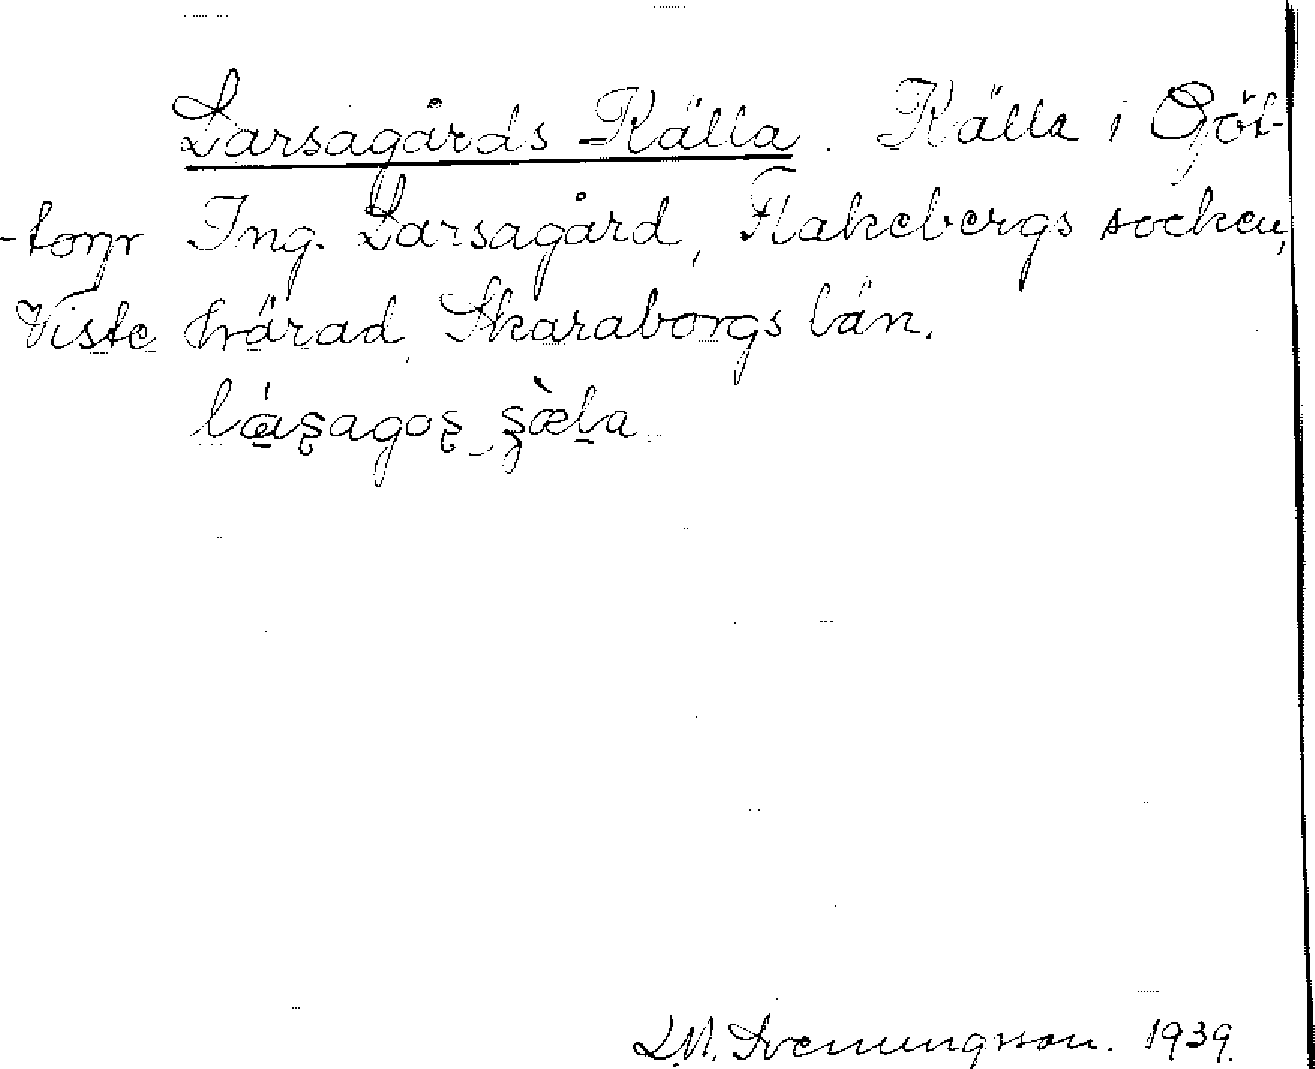 Larsagårds Källa. Källa i Göt-
-torp Ing. Larsagård, Flakebergs socken,
Viste härad, Skaraborgs län.
L.M. Svenungsson. 1939.